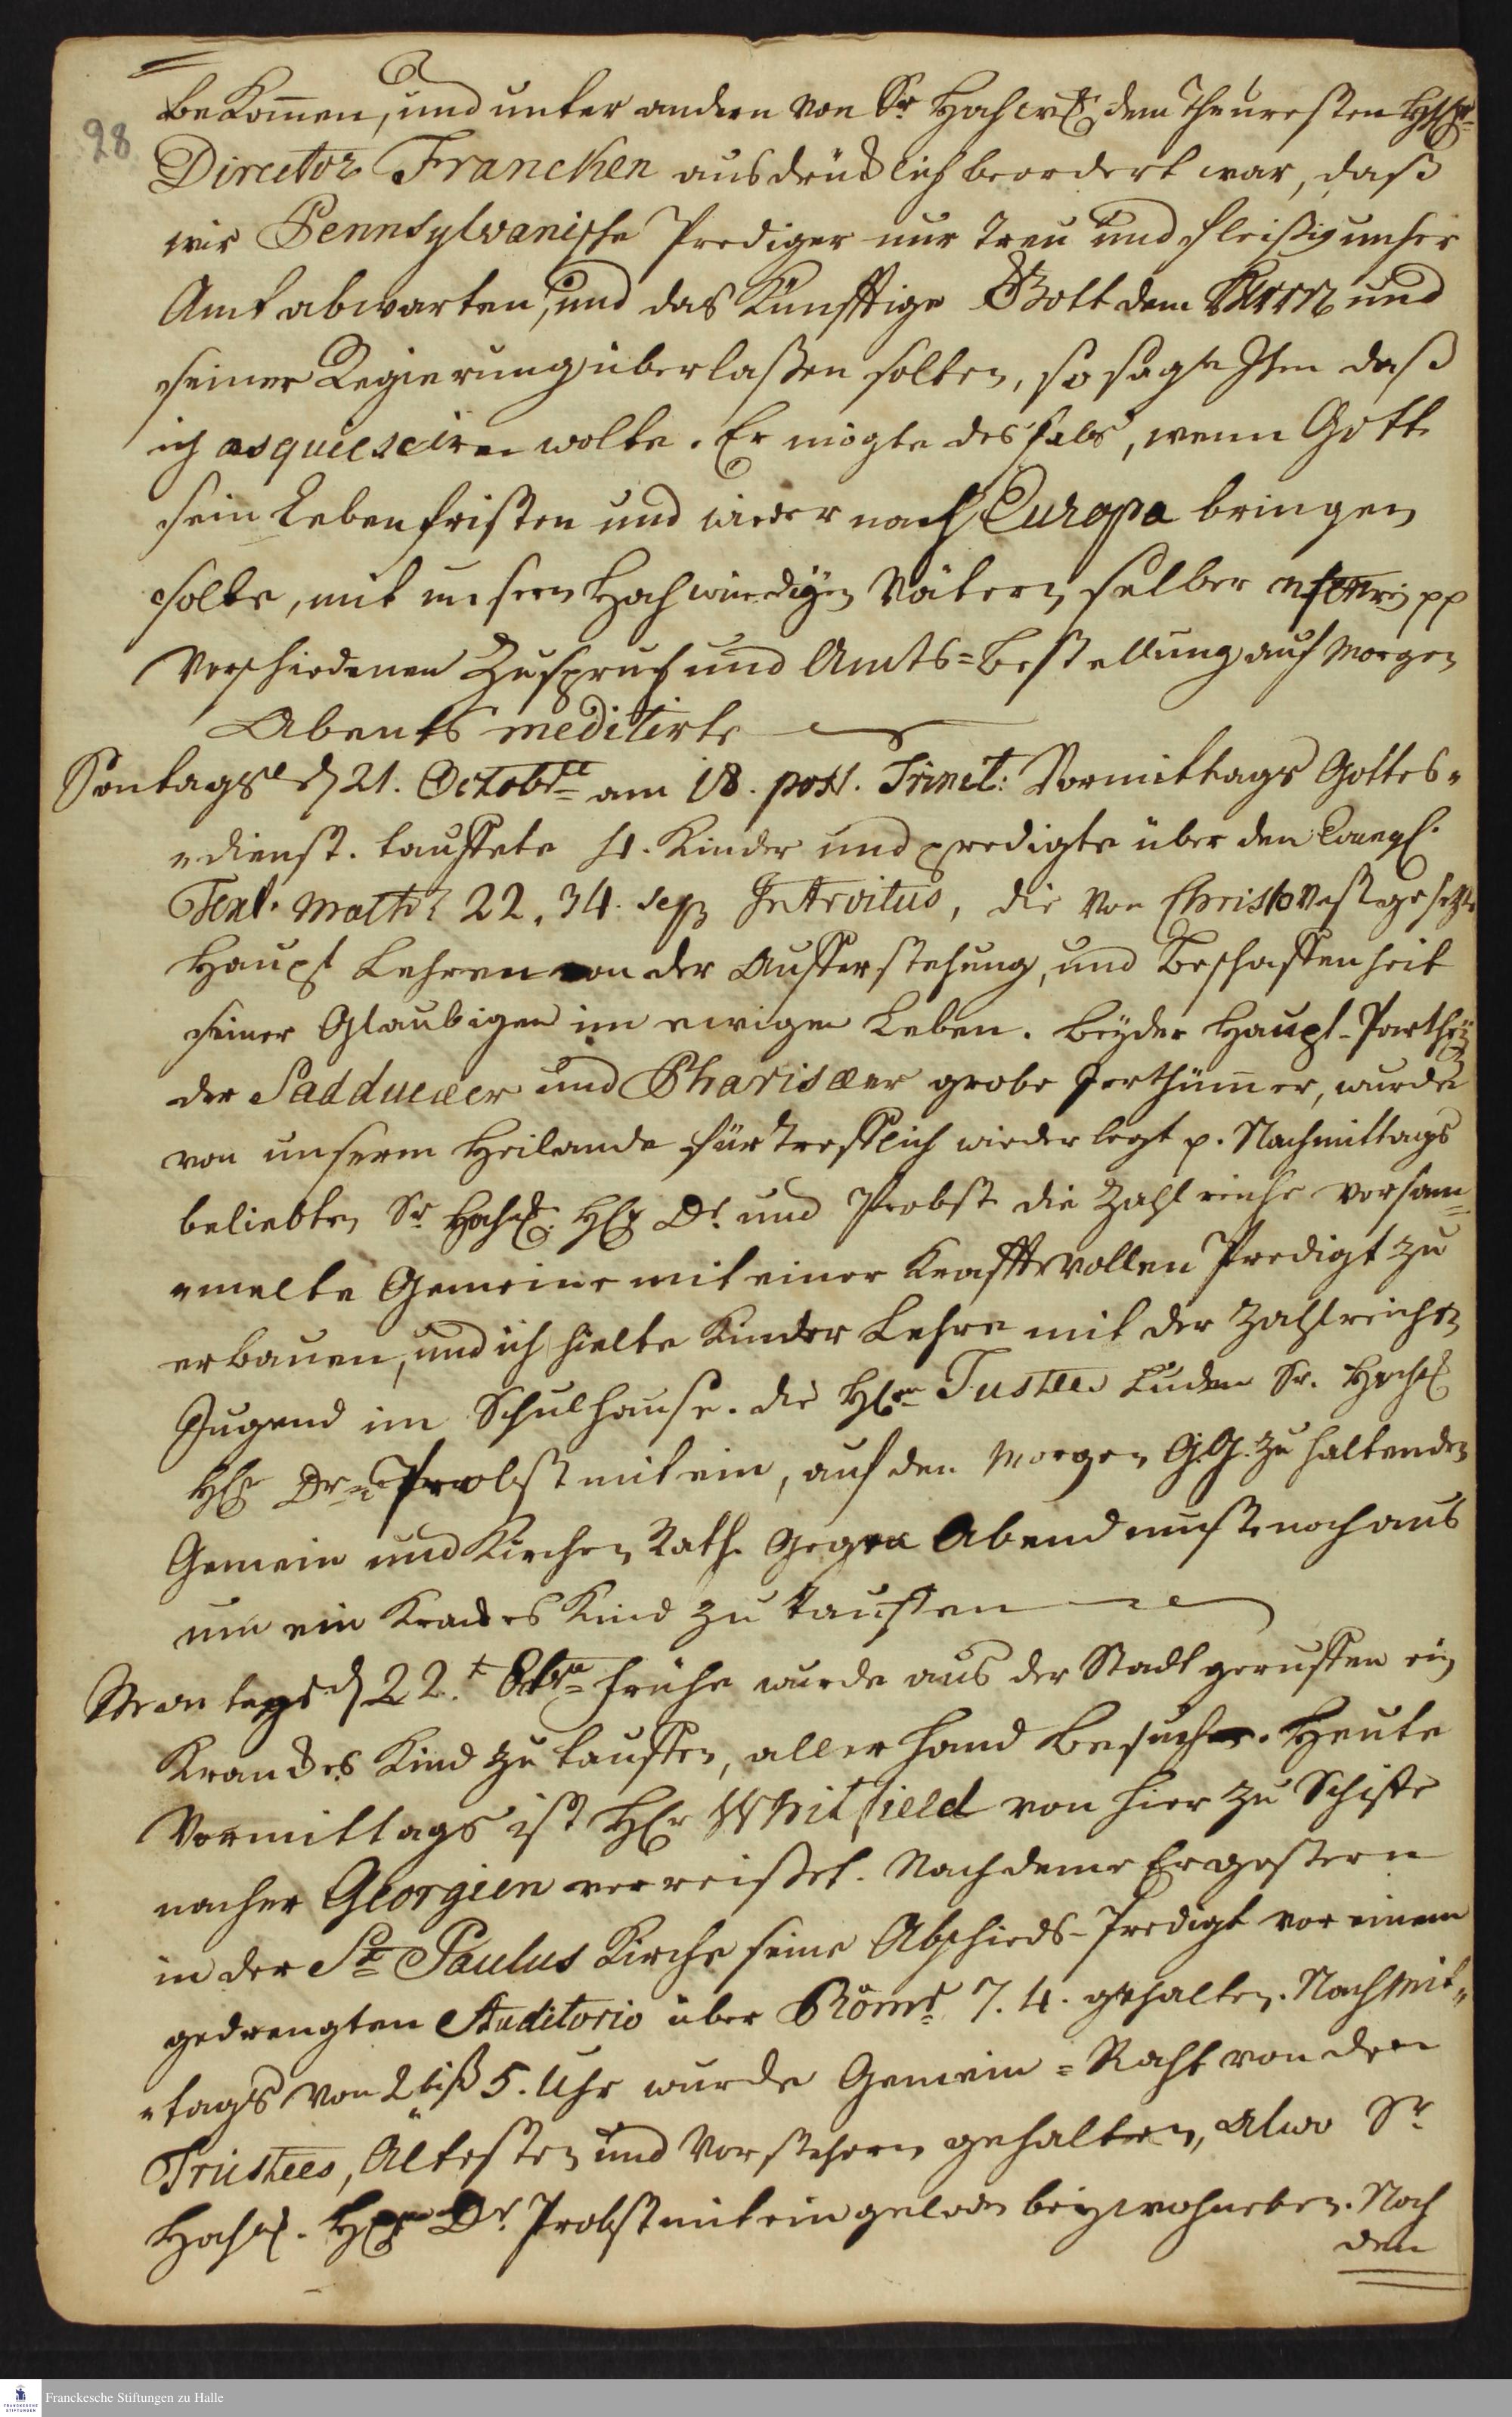 28
bekomen, und unter andern von Sr Hochwd dem Theuresten HEr
Director Francken ausdrücklich beordert war, daß
wir Pennsylvanische Prediger nur treu und fleißig unser
Amt abwarten, und das Künfftige Gott dem HErrn und
seiner Regierung überlaßen solten, so sagte Ihm daß
ich asquiesciren wolte. Er mögte desfals, wenn Gott
sein Leben fristen und wieder nach Europa bringen
solte, mit unsern Hochwürdigen Vätern selber pp
Verschiedenen Zuspruch und Amts=Bestellung auf Morgen
Abents meditirte
Sontags d 21. Octobr am 18. post. Trinit: Vormittags Gottes=
=dienst. tauffete 4. Kinder und predigte über den Evangl.
Text. Matth: 22, 34. seq Introitus, die von Christo vestgesezte
Haupt Lehren von der Aufferstehung, und Beschaffenheit
seiner Glaubigen im ewigen Leben. beyder Haupt-Partheyen
der Sadducæer und Pharisæer grobe Irrthümer, wurden
von unserm Heilande fürtrefflich wiederlegt p. Nachmittags
beliebten Sr Hochwd. HEr Dr. und Probst die Zahlreiche versam=
=melte Gemeine mit einer Krafftvollen Predigt zu
erbauen, und ich hielte Kinder Lehre mit der Zahlreichen
Jugend im Schulhause. die HErn Tustees luden Sr. Hochw
HEr Dr u Probst mit ein, auf den Morgen G.G. zu haltenden
Gemein und Kirchen Rath. Gegen Abend muste noch aus
um ein Krankes Kind zu tauffen
Montags d 22.t 8br frühe wurde aus der Stadt geruffen ein
Krankes Kind zu tauffen, allerhand Besuche. Heute
Vormittags ist HEr Whitfield von hier zu Schiffe
nacher Georgien verreißet. Nachdeme Er gestern
in der St Paulus Kirche seine Abschieds-Predigt vor einem
gedrengten Auditorio über Röm: 7. 4. gehalten. Nachmit=
=tags von 2 biß 5. Uhr wurde Gemein=Raht von den
Trüstees, Ältesten und Vorstehern gehalten, alwo Sr
Hochw. HEr Dr. Probst mit eingeladen beywohneten. Nach
den
Franckesche Stiftungen zu Halle